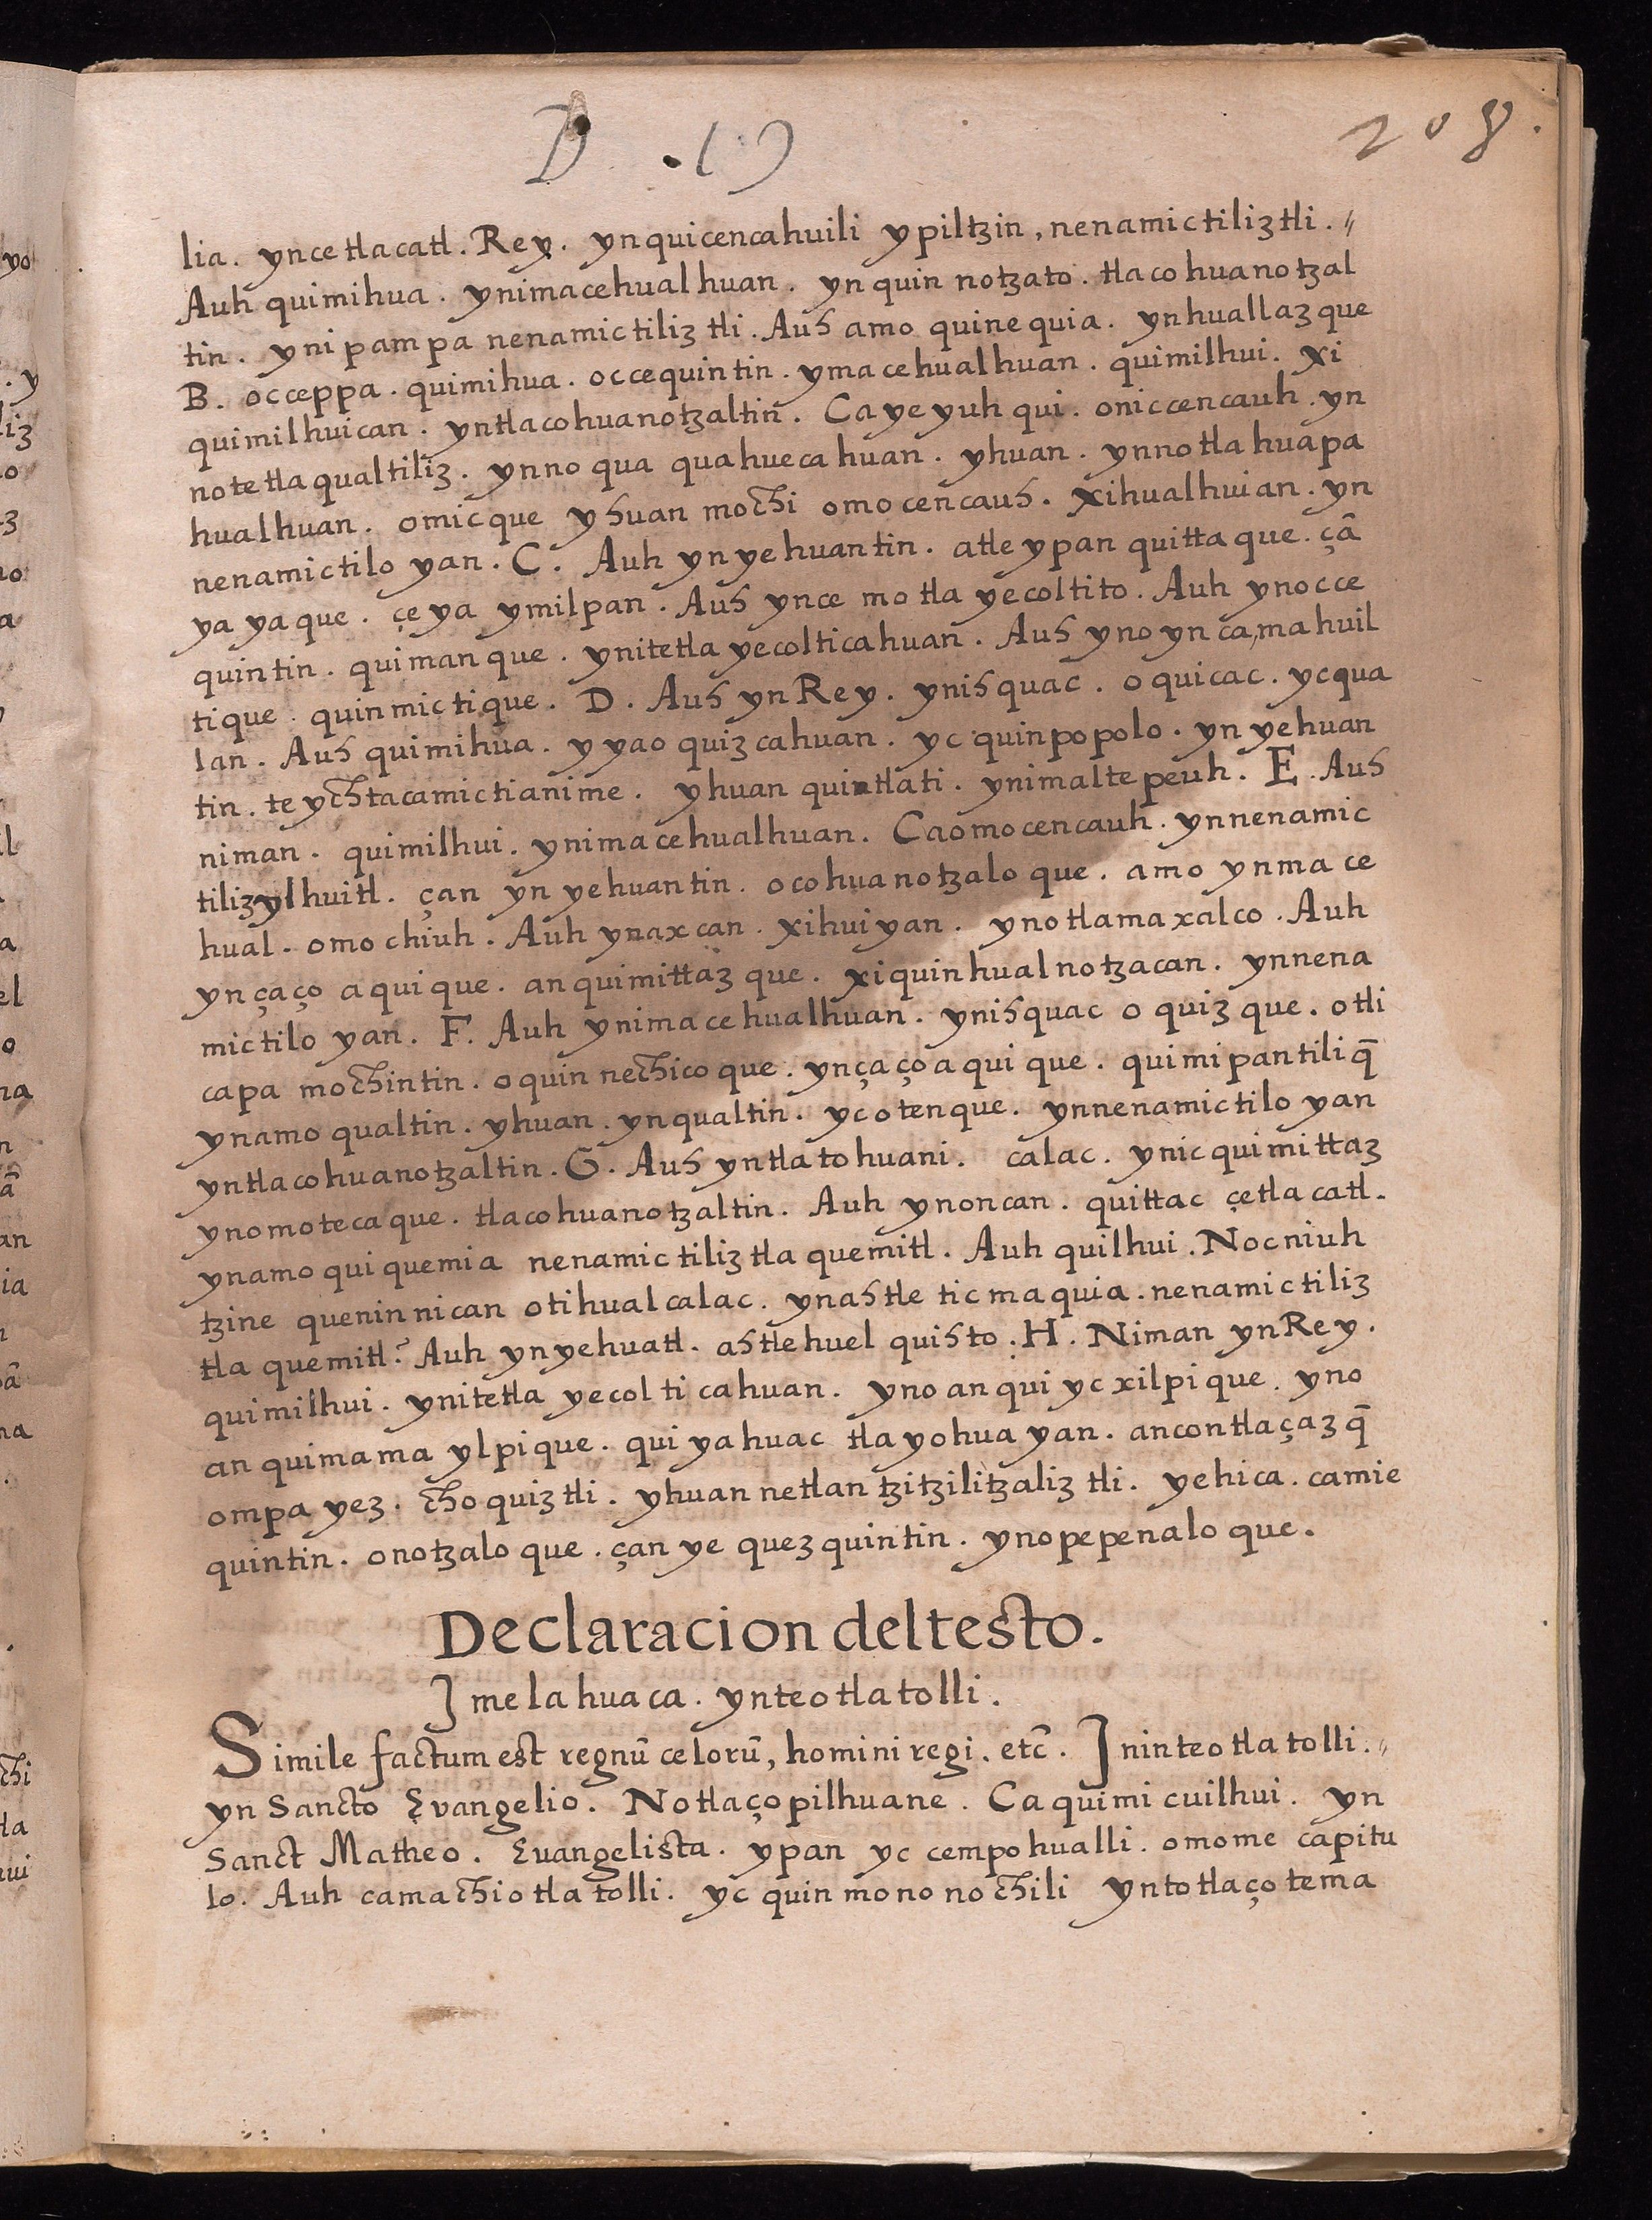 D . 19
208.
lia. yncetlacatl. Rey. ynquicencahuili ypiltzin, nenamictiliztli. //
Auh quimihua. ynimacehualhuan. yn quin notzato. tlacohuanotzal
tin. ynipampa nenamictiliztli. Auh amo quinequia. ynhuallazque
B. occeppa. quimihua. occequintin. ymacehualhuan. quimilhui. Xi
quimilhuican. yntlacohuanotzaltin. Ca ye yuh qui. oniccencauh. yn
notetlaqualtiliz. ynno qua quahuecahuan. yhuan. ynnotlahuapa
hualhuan. omicque yhuan mochi omocencauh. xihualhuian. yn
nenamictilo yan. C. Auh ynyehuantin. atle ypan quittaque. çã
ya yaque. çe ya ymilpan. Auh ynce motlayecoltito. Auh ynocce
quintin. quimanque. ynitetlayecolticahuan. Auh yno yn ca,mahuil
tique. quinmictique. D. Auh ynRey. ynihquac. oquicac. ycqua
lan. Auh quimihua. yyaoquizcahuan. yc quinpopolo. yn yehuan
tin. teychtacamictianime. yhuan quintlati. ynimaltepeuh. E. Auh
niman. quimilhui. ynimacehualhuan. Caomocencauh. ynnenamic
tilizylhuitl. çan yn yehuantin. ocohuanotzaloque. amo ynmace
hual. omochiuh. Auh ynaxcan. xihuiyan. ynotlamaxalco. Auh
ynçaço aquique. anquimittazque. xiquinhualnotzacan. ynnena
mictilo yan. F. Auh ynimacehualhuan. ynihquac oquizque. otli
capa mochintin. oquinnechicoque. ynçaço aquique. quimipantiliq̃
ynamo qualtin. yhuan. ynqualtin. yc otenque. ynnenamictilo yan
yntlacohuanotzaltin. G. Auh yntlatohuani. calac. ynic quimittaz
ynomotecaque. tlacohuanotzaltin. Auh ynoncan. quittac çetlacatl.
ynamo quiquemia nenamictiliztlaquemitl. Auh quilhui. Nocniuh
tzine queninnican otihualcalac. ynahtle ticmaquia. nenamictiliz
tlaquemitl? Auh ynyehuatl. ahtlehuel quihto. H. Niman ynRey.
quimilhui. ynitetlayecolticahuan. ynoanquiycxilpique. yno
anquimama ylpique. quiyahuac tlayohuayan. ancontlaçazq̃
ompa yez. choquiztli. yhuan netlantzitzilitzaliztli. yehica. camie
quintin. onotzaloque. çan ye quezquintin. ynopepenaloque.
Declaracion deltesto.
Imelahuaca. ynteotlatolli.
Simile factum est regnũ celorũ, homini regi. etc̃. Ininteotlatolli. //
yn Sancto Evangelio. Notlaçopilhuane. Ca quimicuilhui. yn
Sanct Matheo. Euangelista. ypan yc cempohualli. omome capitu
lo. Auh camachiotlatolli. yc quinmononochili yntotlaçotema